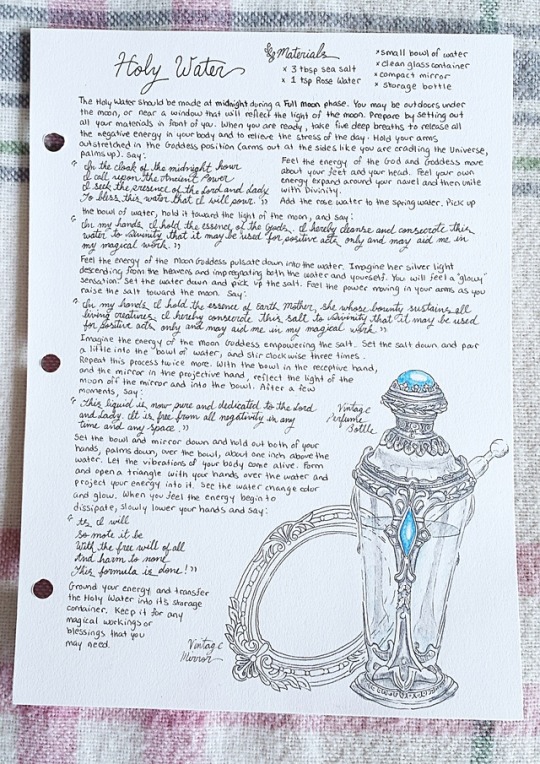 Holy Water
Materials
× 3 tbsp sea salt
× 1 tsp Rose Water
* small bowl of water
* clean glass container
* compact mirror
* storage bottle
The Holy Water should be made at midnight during a Full Moon phase. You may be outdoors under
the moon, or near a window that will reflect the light of the moon. Prepare by setting out
all your materials in front of you. When you are ready, take five deep breaths to release all
the negative energy in your body and to relieve the stress of the day. Hold your arms
outstretched in the Goddess position (arms out at the sides like you are cradling the Universe,
palms up). Say:
"In the cloak of the midnight hour
I call upon the Ancient Power
I seek the presence of the Lord and Lady
To bless this water that I will pour."
Feel the energy of the God and Goddess move
about your feet and your head. Feel your own
energy expand around your navel and then unite
with Divinity.
Add the rose water to the spring water. Pick up
the bowl of water, hold it toward the light of the moon, and say:
"In my hands, I hold the essence of the Gods. I hereby cleanse and consecrate this
water to divinity that it may be used for positive acts only and may aid me in
my magical work."
Feel the energy of the Moon Goddess pulsate down into the water. Imagine her silver light
descending from the heavens and impregnating both the water and yourself. You will feel a "glowy"
sensation. Set the water down and pick up the salt. Feel the power moving in your arms as you
raise the salt toward the moon. Say:
"In my hands, I hold the essence of Earth Mother, she whose bounty sustains all
living creatures. I hereby consecrate this salt to divinity that it may be used
for positive acts only and may aid me in my magical work."
Imagine the energy of the Moon Goddess empowering the salt. Set the salt down and pour
a little into the bowl of water, and stir clockwise three times.
Repeat this process twice more. With the bowl in the receptive hand,
and the mirror in the projective hand, reflect the light of the
moon off the mirror and into the bowl. After a few
moments, say:
"This liquid is now pure and dedicated to the Lord
and Lady. It is free from all negativity in any
time and any space."
Vintage
Perfume
Bottle
Set the bowl and mirror down and hold out both of your
hands, palms down, over the bowl, about one inch above the
water. Let the vibrations of your body come alive. Form
and open a triangle with your hands over the water and
project your energy into it. See the water change color
and glow. When you feel the energy begin to
dissipate, slowly lower your hands and say:
"As I will
so mote it be
With the free will of all
And harm to none
This formula is done!"
Ground your energy and transfer
the Holy Water into its storage
container. Keep it for any
magical workings or
blessings that you
may need.
Vintage
Mirror